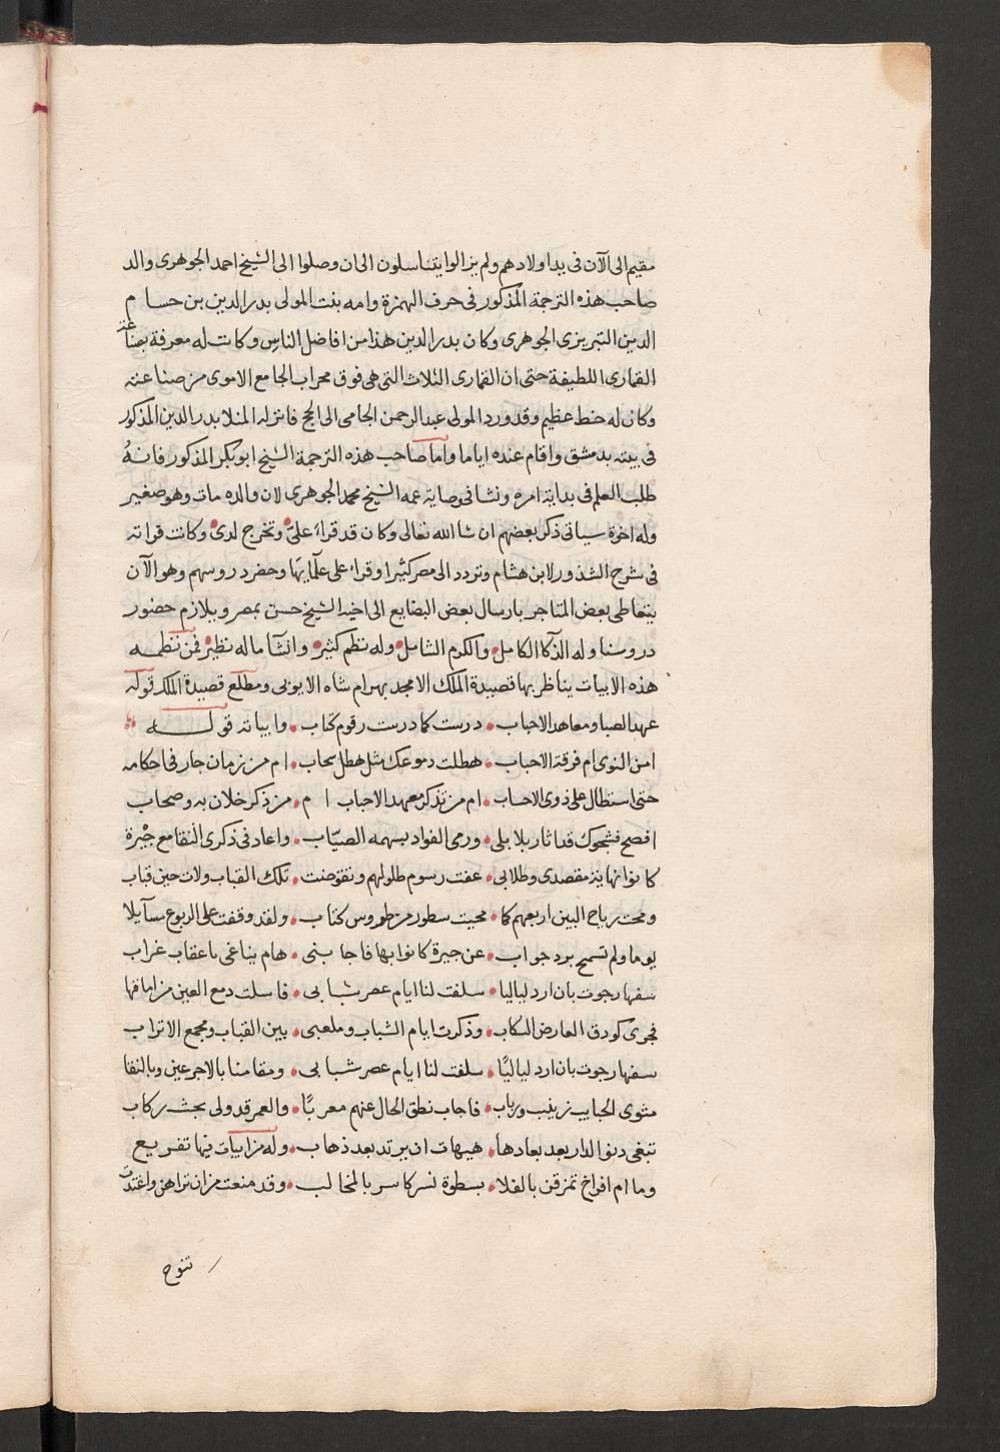 مقيم الى الآن فى يد اولادهم ولم يزالوا يتناسلون الى ان وصلوا الى الشيخ احمد الجوهرى والد
صاحب هذه الترجمة المذكور فى حرف الهمزة وامه بنت المولى بدر الدين بن حسام
الدين التبريزى الجوهرى وكان بدر الدين هذا من افاضل الناس وكانت له معرفة بصناعة
القمارى اللطيفة حتى ان القمارى الثلاث التى هى فوق محراب الجامع الاموى من صناعته
وكان له خط عظيم وقد ورد المولى عبد الرحمن الجامى الى الحج فانزله المنلا بدر الدين المذكور
فى بيته بدمشق واقام عنده اياما واما صاحب هذه الترجمة الشيخ ابو بكر المذكور فانهُ
طلب العلم فى بداية امره ونشا فى وصاية عمه الشيخ محمد الجوهرى لان والده مات وهو صغير
وله اخوة سياتى ذكر بعضهم ان شا الله تعالى وكان قد قراء علىّ وتخرج لدى وكانت قراته
فى شرح الشذور لابن هشام وتردد الى مصر كثيرا وقراء على علمآيها وحضر دروسهم وهو الآن
يتعاطى بعض المتاجر بارسال بعض البضايع الى اخيه الشيخ حسن بمصر ويلازم حضور
دروسنا وله الذكآ الكامل والكرم الشامل وله نظم كثير وانشآ ماله نظير فمن نظمه
هذه الابيات يناظر بها قصيدة الملك الامجد بهرام شاه الايوبى ومطلع قصيدة الملك قوله
عهد الصبا ومعاهد الاحباب درست كما درست رقوم كتاب وابياته قوله
امن النوى ام فرقة الاحباب هطلت دموعك مثل هطل سحاب ام من زمان جار فى احكامه
حتى استطال على ذوى الاحساب ام من تذكر معهد الاحباب ام من ذكر خلان به وصحاب
افصح فشجوك قد اثار بلابلى ورمى الفواد بسهمه الصيّاب واعاد فى ذكرى النقا مع جيْرة
كانوا نهاية مقصدى وطلابى عفت رسوم طلولهم وتقوضت تلك القباب ولات حين قباب
ومحت رياح البين اربعهم كما محيت سطور من طروس كتاب ولقد وقفت على الربوع مسآيلا
يوما ولم تسمح برد جواب عن جيرة كانوا بها فاجابنى هام يناغى باعقاب غراب
سفها رجوت بان ارد لياليا سلفت لنا ايام عصر شبابى فاسلت دمع العين من اماقها
فجرى كودق العارض السكاب وذكرت ايام الشباب وملعبى بين القباب ومجمع الاتراب
سفها رجوت بان ارد لياليًا سلفت لنا ايام عصر شبابى ومقامنا بالاجرعين وبالنقا
مثوى الحبايب زينب ورباب فاجاب نطق الحال عنهم معربًا والعمر قد ولى بحث ركاب
تبغى دنو الدار بعد بعادها هيهات ان يرتد بعد ذهاب وله من ابيات فيها تفريع
وما ام افراخ تمزقن بالفلا بسطوة نسر كاسر بالمخالب وقد منعت من ان تراهن واغتدت
تنوح